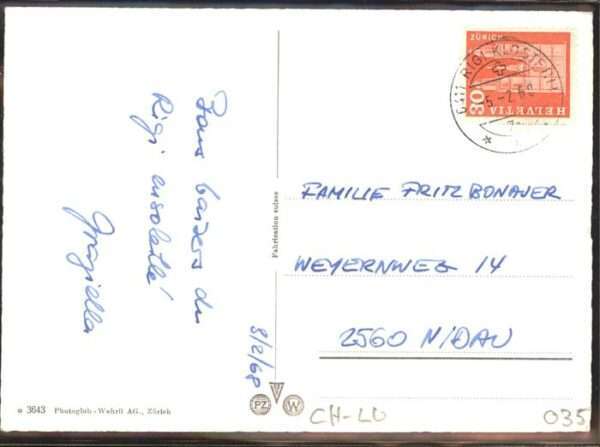 Bons baisers du
Rigi ensoleillé
Graziella
8/2/68
ZÜRICH
30
HELVETIA
RIGI KLÖSTERLI
FAMILIE FRITZ BONAUER
WEYERNWEG 14
2560 NIDAU
Fabrication suisse
3643 Photoglob-Wehrli AG., Zürich
PZ W
CH-LU
035